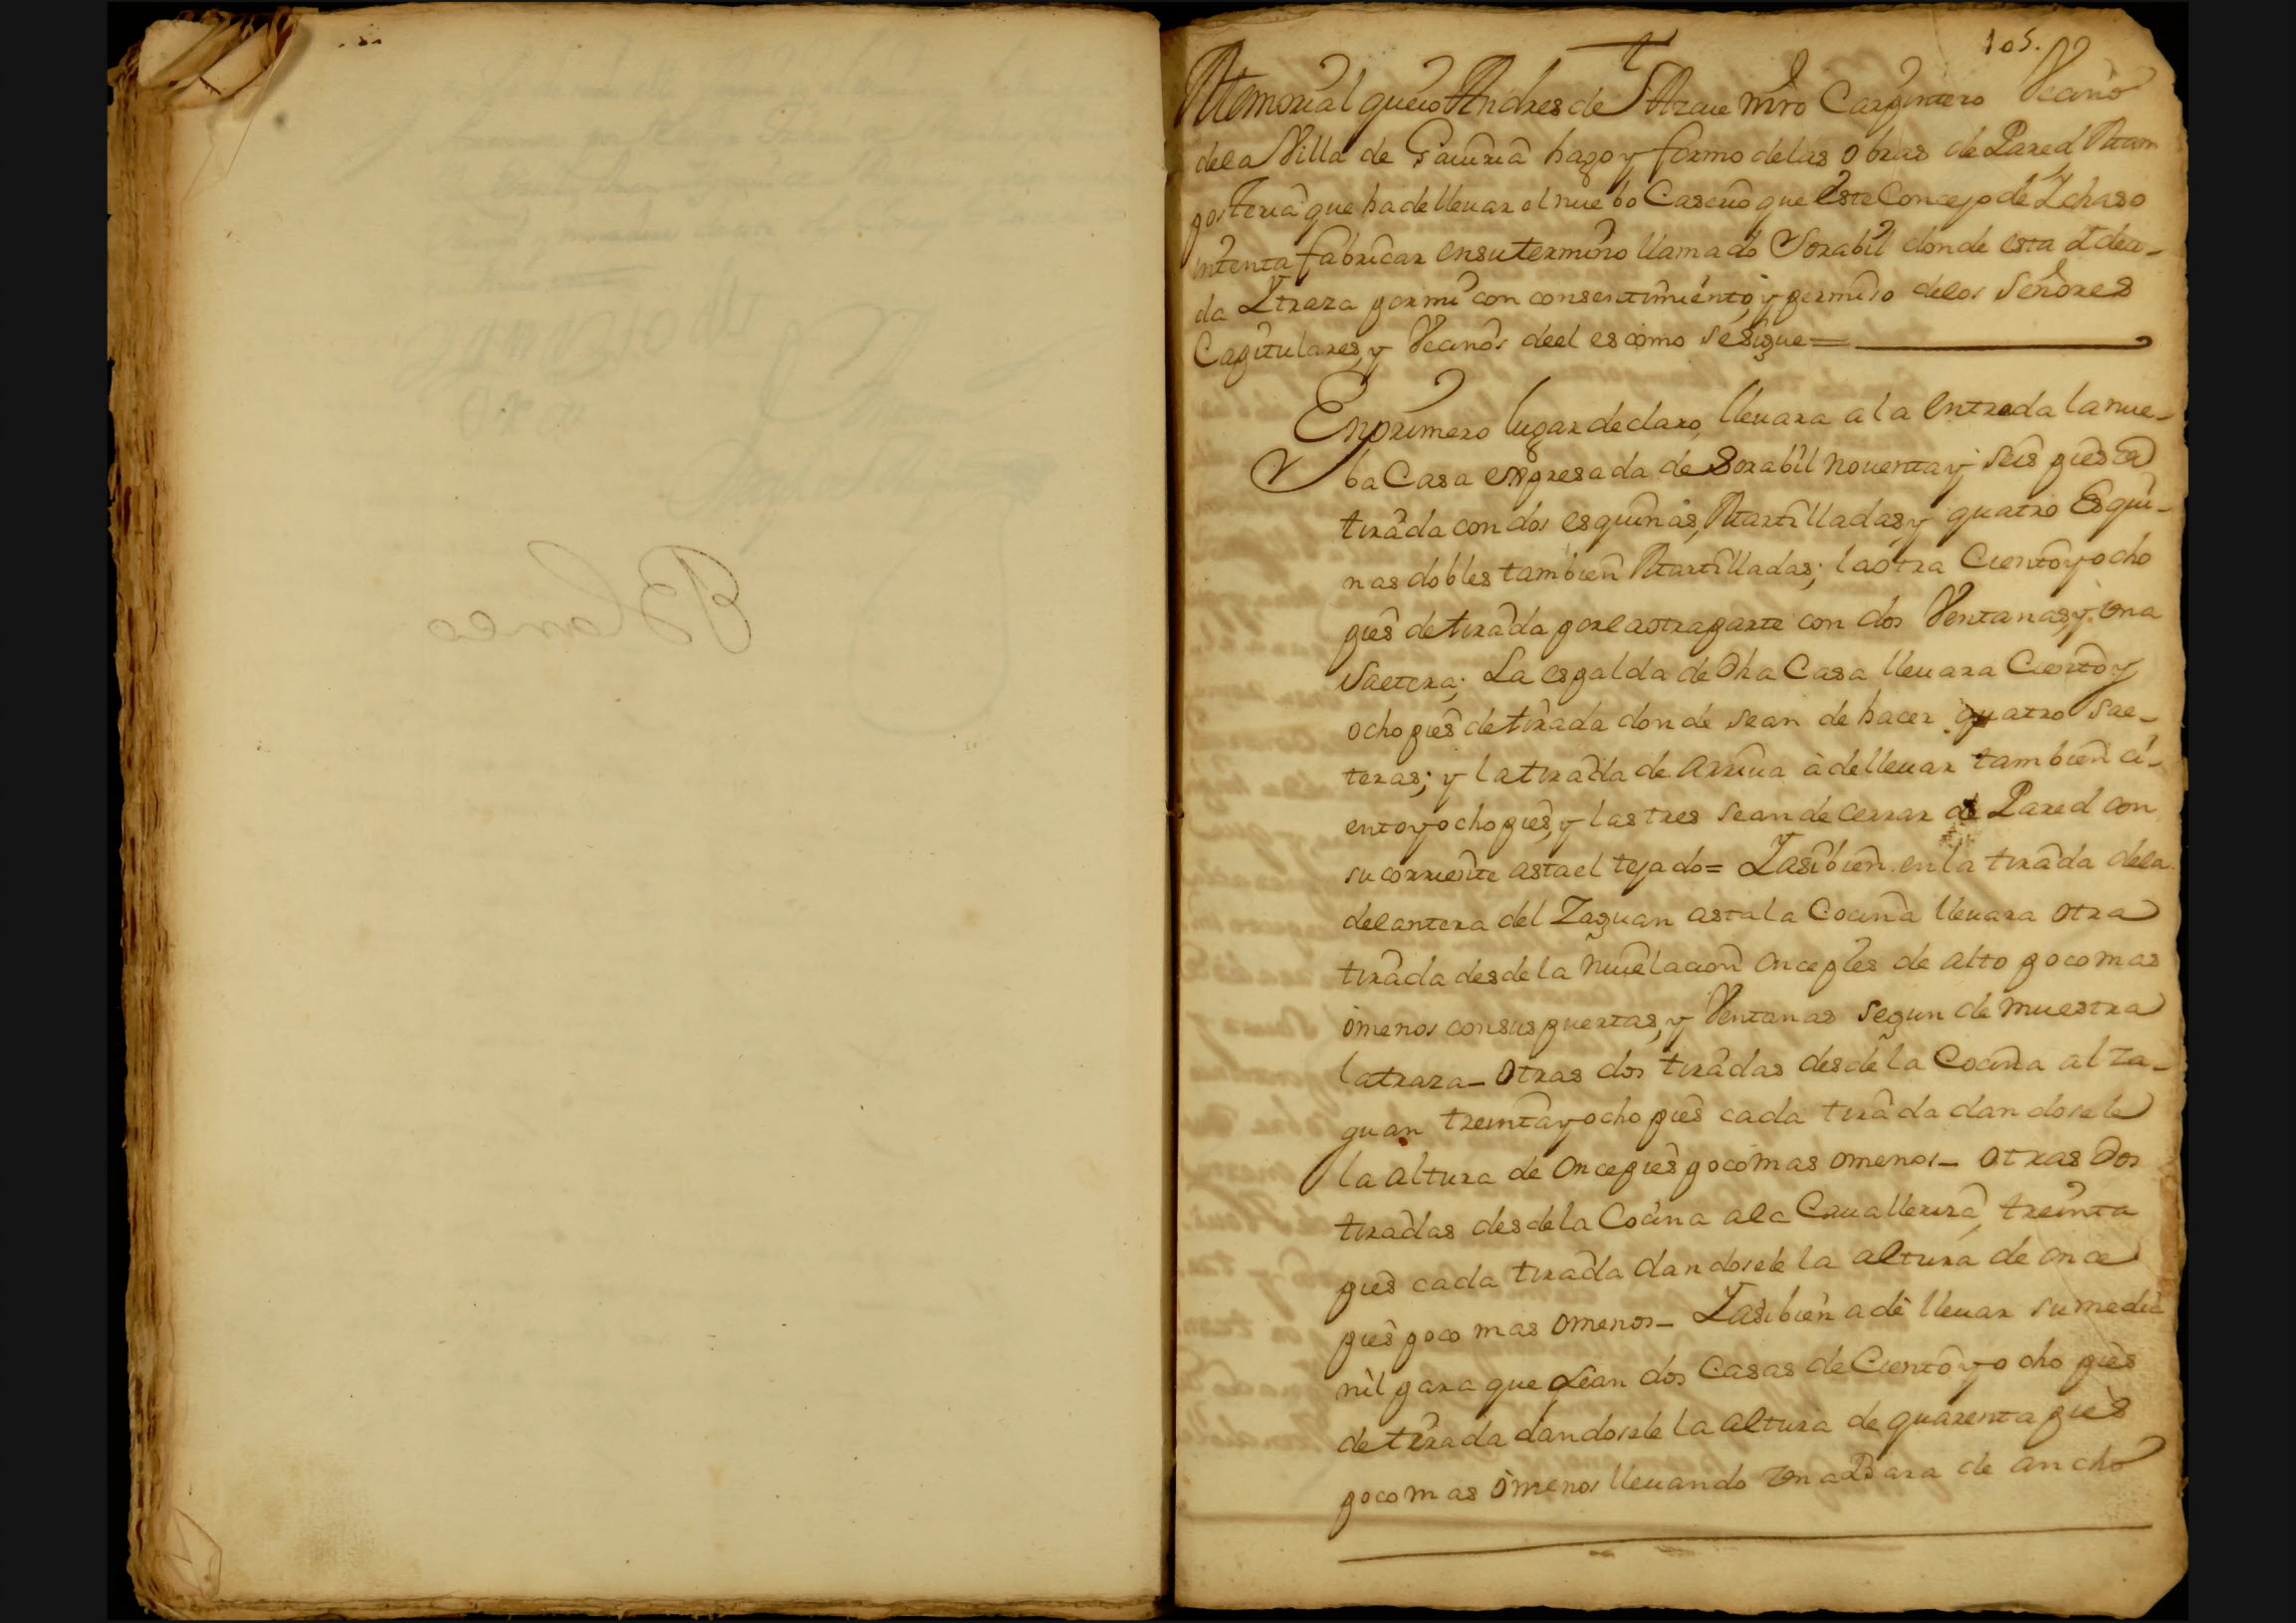 105.
Memorial que io Andres de Arzue mro Carpintero Vecino
de la Villa de Gauiria hago y formo de las obras de Pared Mam
posteria que ha de lleuar el nuebo Caserio que este Concejo de Ychaso
intenta fabricar en su termino llamado Sorabil donde esta Ydea-
da Ytraza por mi con consentimiento, y permiso delos Señores
Capitulares, y Vecinos deel es como se sigue=
En primero lugar declaro, lleuara a la entrada la nue-
ba Casa expresada de Sorabil nouenta y seis pies de
tirada con dos esquinas, Martilladas, y quatro Esqui-
nas dobles tambien Martilladas; la otra Ciento y ocho
pies de tirada por la otra parte con dos Ventanas, y una
Saetera; La espalda de Dha Casa lleuara Ciento y
ocho pies de tirada donde sean de hacer quatro sae-
teras; y la tirada de arriua à de lleuar tambien ci-
ento y ocho pies, y las tres sean de cerrar de Pared con
su corriente asta el tejado= Yasibien en la tirada dela
delantera del Zaguan asta la Cocina lleuara otra
tirada desde la Niuelacion once pies de alto poco mas
ò menos con sus puertas, y Ventanas segun demuestra
la traza- Otras dos tiradas desde la Cocina al Za-
guan treinta y ocho pies cada tirada dandosele
la altura de once pies poco mas omenos- otras Dos
tiradas desde la Cocina ala Cauallerira, treinta
pies cada tirada dandosele la altura de once
pies poco mas omenos- Yasibien a de lleuar su media
nil para que sean dos Casas de Ciento y ocho pies
de tirada dandosele la altura de quarenta pies
poco mas ò menos lleuando una Bara de ancho